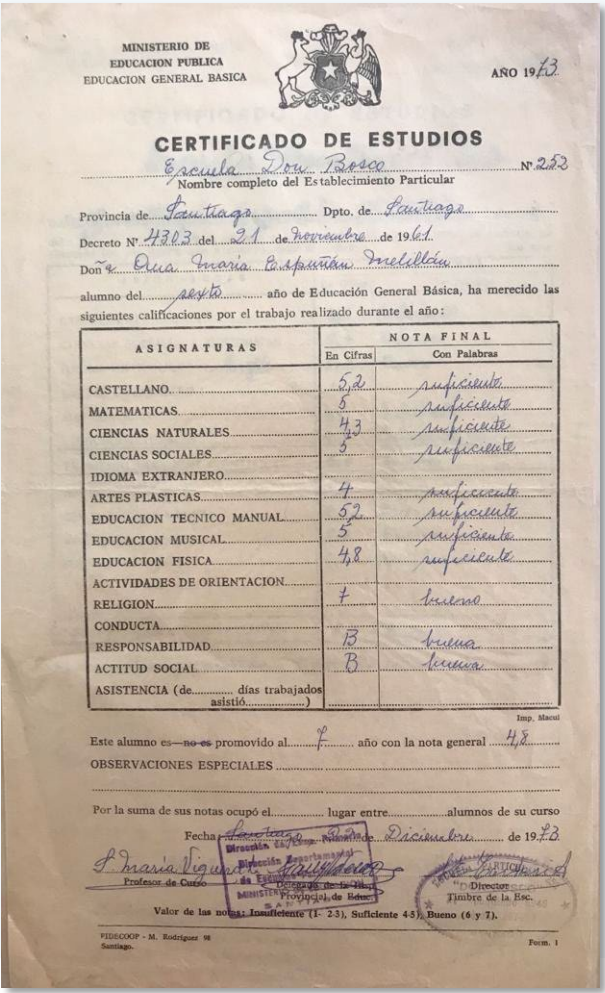 MINISTERIO DE
EDUCACION PUBLICA
EDUCACION GENERAL BASICA
AÑO 1973
CERTIFICADO DE ESTUDIOS
Escuela Don Bosco Nº 252
Nombre completo del Establecimiento Particular
Provincia de Santiago Dpto. de Santiago
Decreto Nº 4303 del 21 de Noviembre de 1961
Doña Ana María Espuñán Melillán
alumno del sexto año de Educación General Básica, ha merecido las
siguientes calificaciones por el trabajo realizado durante el año:
ASIGNATURAS NOTA FINAL
En Cifras Con Palabras
CASTELLANO 5,2 suficiente
MATEMATICAS 5 suficiente
CIENCIAS NATURALES 4,3 suficiente
CIENCIAS SOCIALES 5 suficiente
IDIOMA EXTRANJERO
ARTES PLASTICAS 4 suficiente
EDUCACION TECNICO MANUAL 52 suficiente
EDUCACION MUSICAL 5 suficiente
EDUCACION FISICA 4,8 suficiente
ACTIVIDADES DE ORIENTACION
RELIGION 7 bueno
CONDUCTA
RESPONSABILIDAD B buena
ACTITUD SOCIAL B buena
ASISTENCIA (de días trabajados
asistió )
Imp. Macul
Este alumno es—no es promovido al 7 año con la nota general 4,8
OBSERVACIONES ESPECIALES
Por la suma de sus notas ocupó el lugar entre alumnos de su curso
Fecha: Santiago 22 de Diciembre de 1973
Dirección Departamental
S. María
Profesor de Curso Delegado de la Insp. Director
Provincial de Educ. Timbre de la Esc.
SANTIAGO
Valor de las notas: Insuficiente (1- 2-3), Suficiente 4-5), Bueno (6 y 7).
FIDECOOP - M. Rodríguez 98
Santiago.
Form. 1